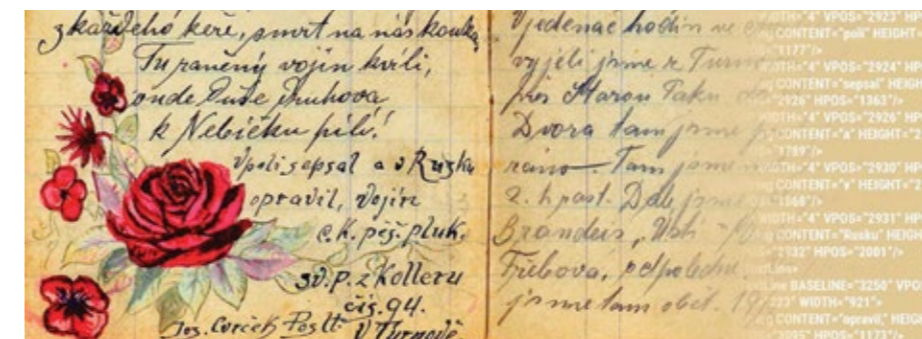 z každého keře, smrt na nás kouká,
Tu raněný vojín kvílí,
onde Duše Druhova
k Nebíčku pílí!
V poli sepsal a v Rusku
opravil, Vojín
c.k. pěš. pluk.
sv. p. z Kolleru
čís. 94.
Jos.
V Turnově
V jedenác hodin ve
vyjeli jsme z Turn
přes Starou Paku do
Dvora tam jsme
ráno. Tam jsme
2. h past. Dále jsme
Brandeis, Ústí
Třebova, odpoledne
jsme tam oběd.
IDTH="4" VPOS="2923" HP
CONTENT="poli" HEIGHT=
"1177"/>
IDTH="4" VPOS="2924" HP
CONTENT="sepsal" HEIGHT=
"2926" HPOS="1363"/>
IDTH="4" VPOS="2926" HP
CONTENT="a" HEIGHT="
"1789"/>
IDTH="4" VPOS="2930" HP
CONTENT="v" HEIGHT="
"1868"/>
IDTH="4" VPOS="2931" HP
CONTENT="Rusku" HEIGHT
"2932" HPOS="2001"/>
tLine>
Line BASELINE="3250" VPO
223" WIDTH="921">
CONTENT="opravil," HEIGH
"3095" HPOS="1173"/>